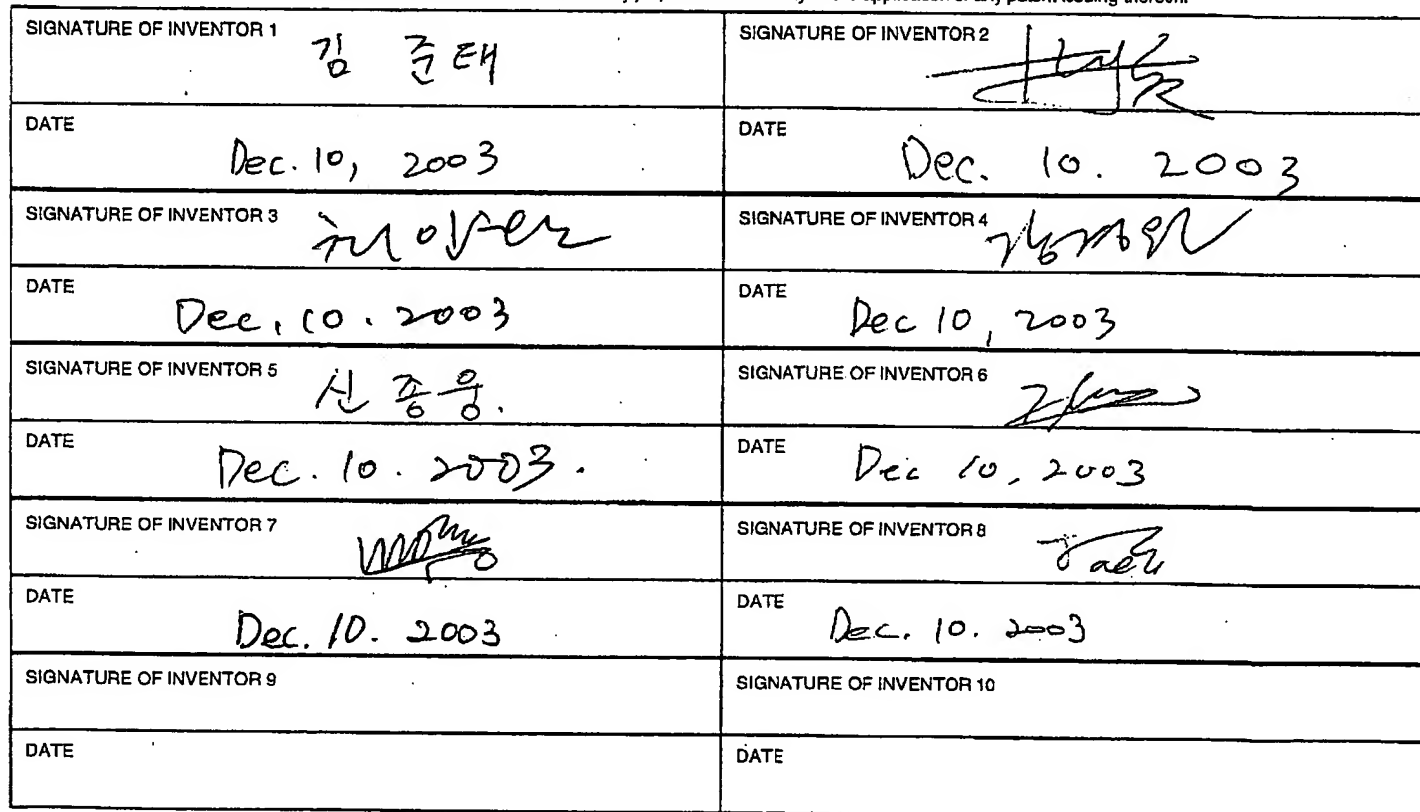 SIGNATURE OF INVENTOR 1
김 준태
SIGNATURE OF INVENTOR 2
DATE
Dec. 10, 2003
DATE
Dec. 10. 2003
SIGNATURE OF INVENTOR 3
SIGNATURE OF INVENTOR 4
DATE
Dec. 10. 2003
DATE
Dec 10, 2003
SIGNATURE OF INVENTOR 5
신 종웅.
SIGNATURE OF INVENTOR 6
DATE
Dec. 10. 2003.
DATE
Dec 10, 2003
SIGNATURE OF INVENTOR 7
SIGNATURE OF INVENTOR 8
DATE
Dec. 10. 2003
DATE
Dec. 10. 2003
SIGNATURE OF INVENTOR 9
SIGNATURE OF INVENTOR 10
DATE
DATE